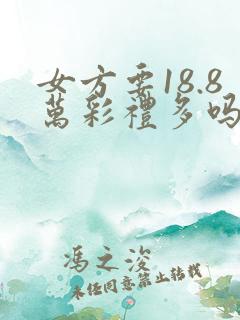 女方要18.8
萬彩禮多吗
馮之浚
未经同意禁止转载